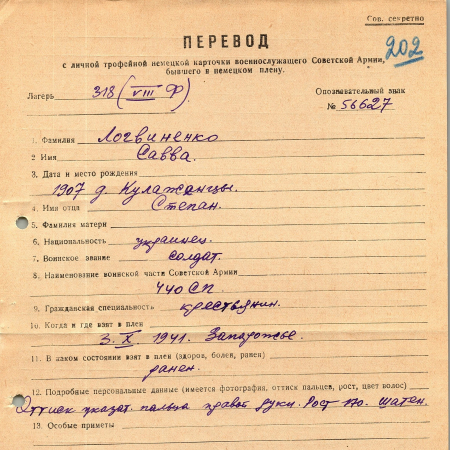 Сов. секретно
ПЕРЕВОД
202
с личной трофейной немецкой карточки военнослужащего Советской Армии,
бывшего в немецком плену.
Лагерь 318 (VIII Ф)
Опознавательный знак
№ 56627
1. Фамилия Логвиненко
2 Имя Савва.
3. Дата и место рождения
1907 д. Кулажинцы.
4. Имя отца Степан.
5. Фамилия матери
6. Национальность украинец.
7. Воинское звание солдат.
8. Наименование воинской части Советской Армии
440 СП.
9. Гражданская специальность крестьянин.
10. Когда и где взят в плен
3. X. 1941. Запарожье.
11. В каком состоянии взят в плен (здоров, болен, ранен)
ранен.
12. Подробные персональные данные (имеется фотография, оттиск пальцев, рост, цвет волос)
Оттиск указат. пальца правой руки. Рост 170. шатен.
13. Особые приметы